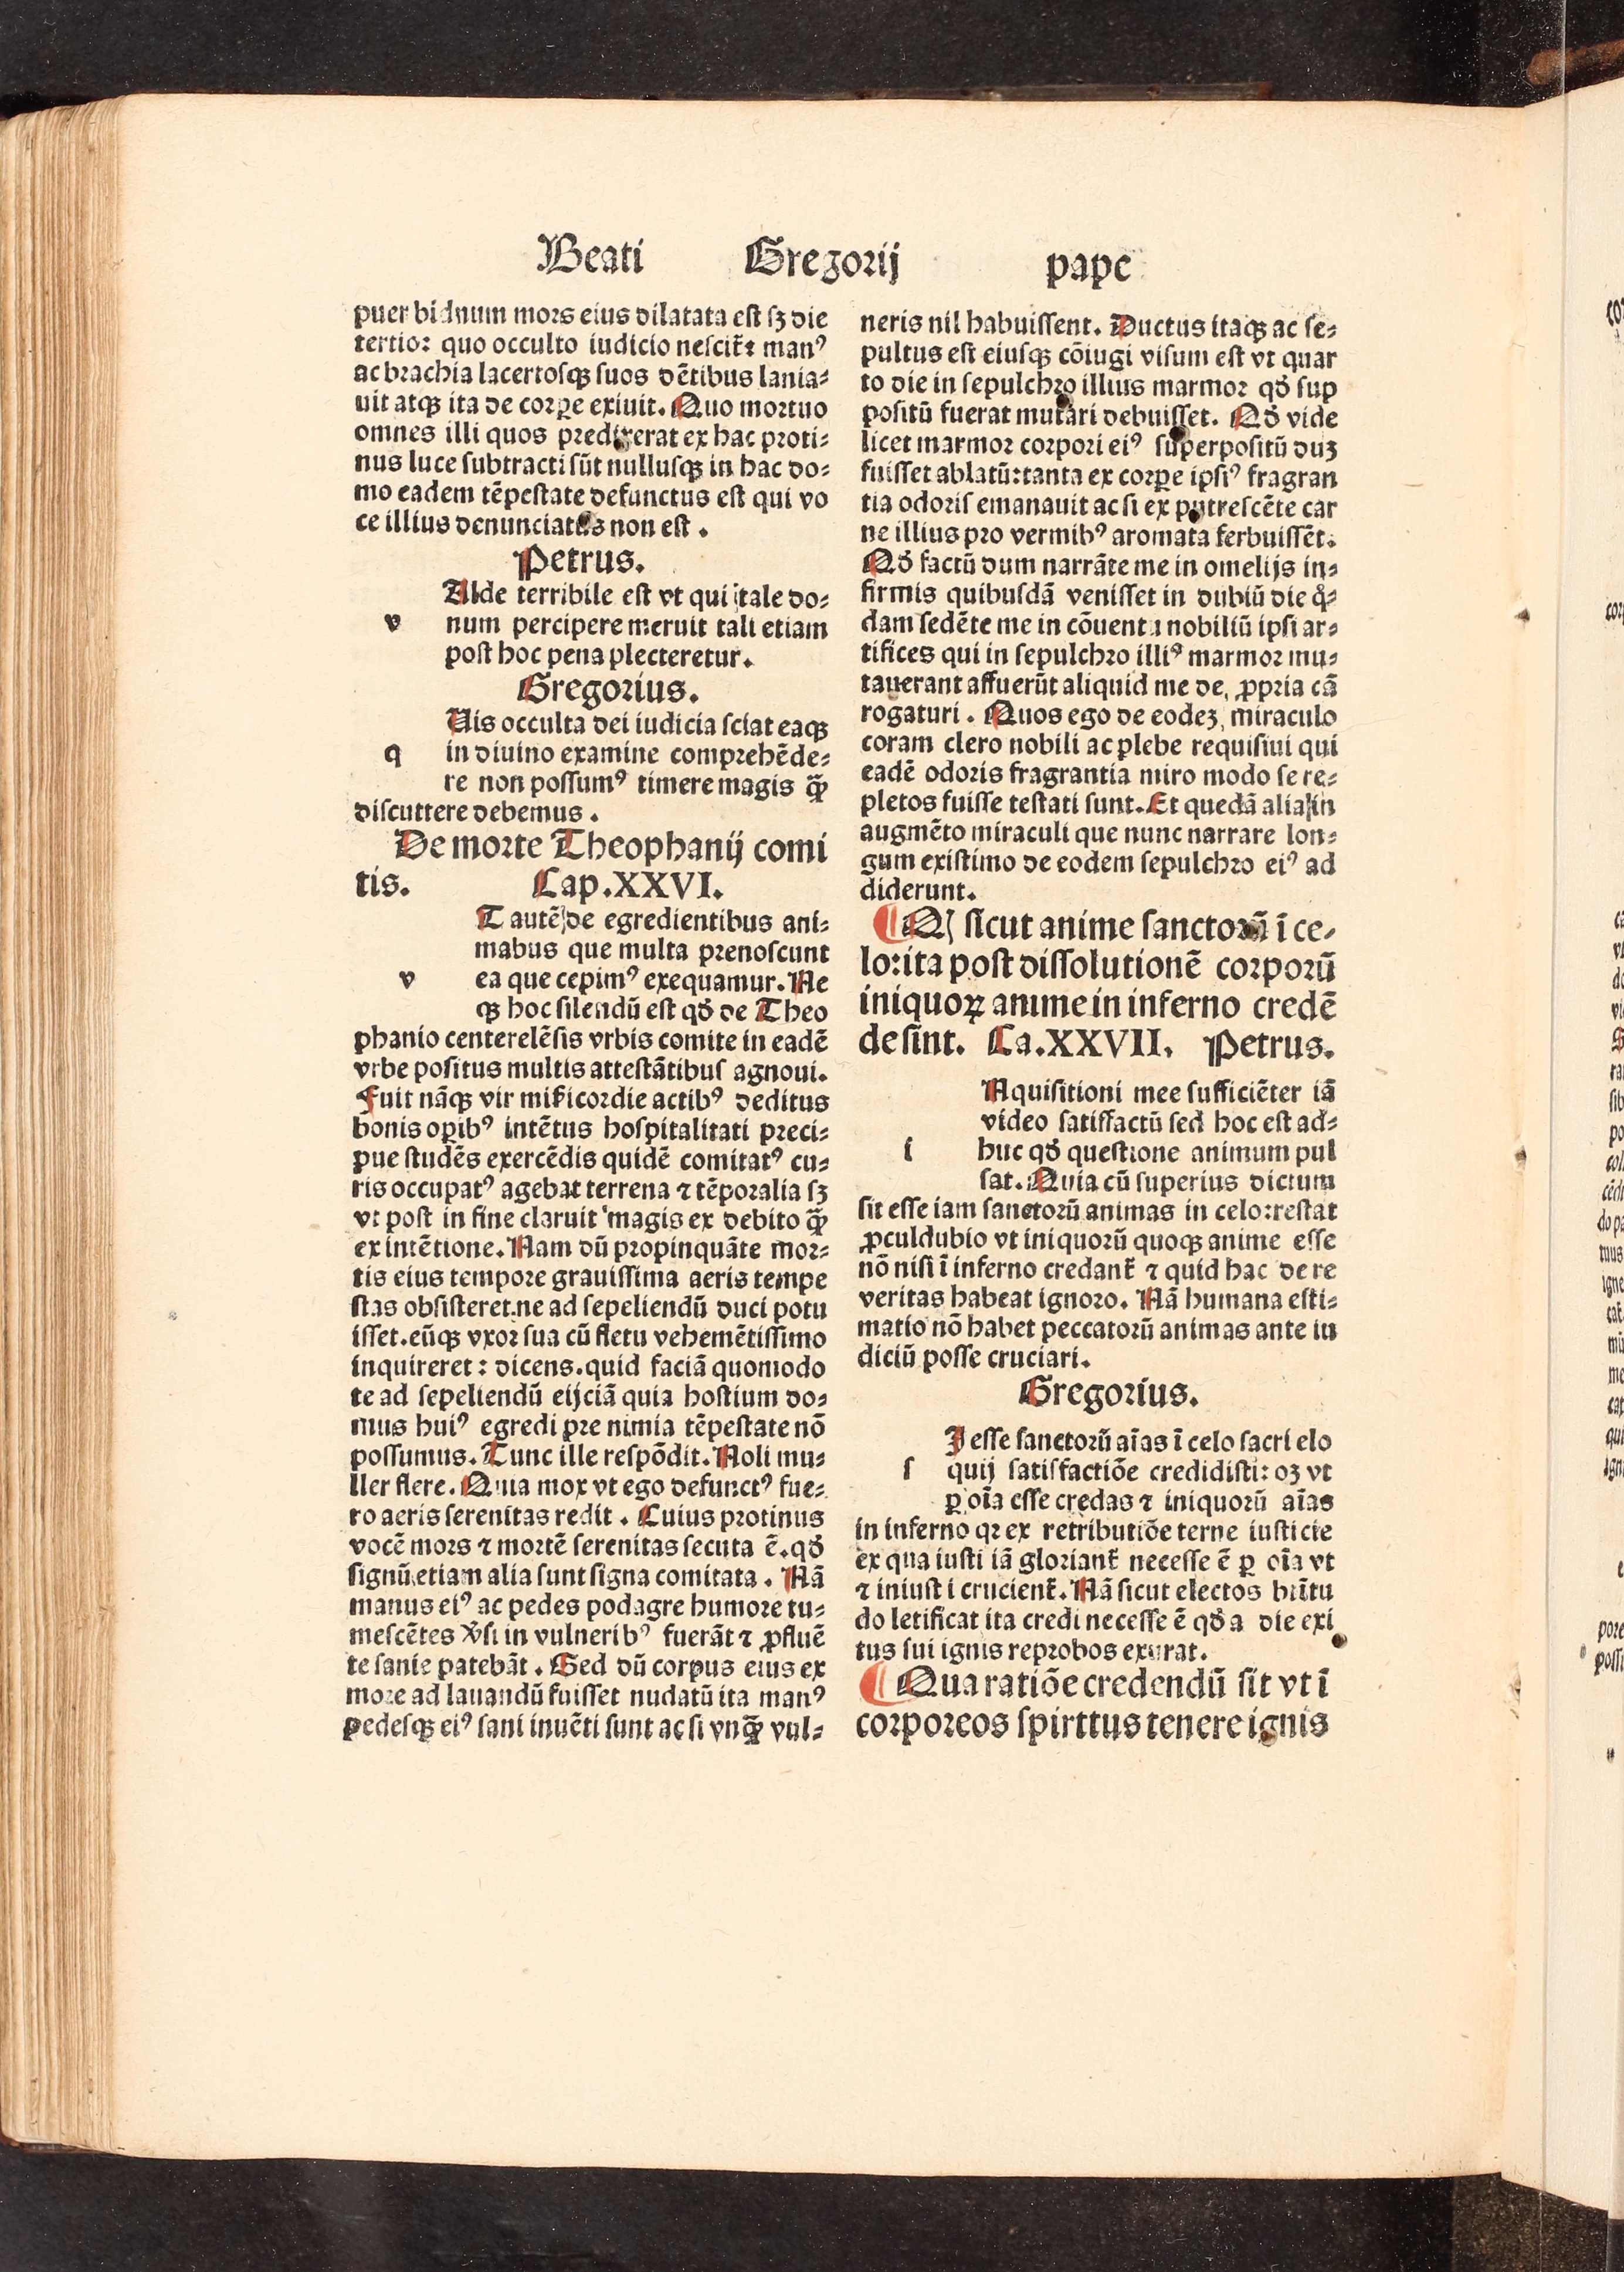 Beati Gregorij pape
puer biduum mors eius dilatata est sꝫ die
tertio: quo occulto iudicio nescit̃ꝛ manꝰ
ac brachia lacertosqꝫ suos dẽtibus lania⸗
uit atqꝫ ita de corꝑe exiuit. Quo mortuo
omnes illi quos predixerat ex hac proti⸗
nus luce subtracti sũt nullusqꝫ in hac do⸗
mo eadem tẽpestate defunctus est qui vo
ce illius denunciatus non est.
Petrus.
Alde terribile est vt qui tale do⸗
v num percipere meruit tali etiam
post hoc pena plecteretur.
Gregorius.
Uis occulta dei iudicia sciat eaqꝫ
q in diuino examine comprehẽde⸗
re non possumꝰ timere magis q̃ꝫ
discuttere debemus.
De morte Theophanij comi
tis. Cap. XXVI.
T autẽ de egredientibus ani⸗
mabus que multa prenoscunt
v ea que cepimꝰ exequamur. Ne
qꝫ hoc silendũ est qđ de Theo
phanio centerelẽsis vrbis comite in eadẽ
vrbe positus multis attestãtibus agnoui.
Fuit nãqꝫ vir mĩicordie actibꝰ deditus
bonis oꝑibꝰ intẽtus hospitalitati preci⸗
pue studẽs exercẽdis quidẽ comitatꝰ cu⸗
ris occupatꝰ agebat terrena ⁊ tẽporalia sꝫ
vt post in fine claruit magis ex debito q̃ꝫ
ex intẽtione. Nam dũ propinquãte mor⸗
tis eius tempore grauissima aeris tempe
stas obsisteret. ne ad sepeliendũ duci potu
isset. eũqꝫ vxor sua cũ fletu vehemẽtissimo
inquireret: dicens. quid faciã quomodo
te ad sepeliendũ eijciã quia hostium do⸗
mus huiꝰ egredi pre nimia tẽpestate nõ
possumus. Tunc ille respõdit. Noli mu⸗
lier flere. Quia mox vt ego defunctꝰ fue⸗
ro aeris serenitas redit. Cuius protinus
vocẽ mors ⁊ mortẽ serenitas secuta ẽ. qđ
signũ etiam alia sunt signa comitata. Nã
manus eiꝰ ac pedes podagre humore tu⸗
mescẽtes v̾si in vulneribꝰ fuerãt ⁊ ꝓfluẽ
te sanie patebãt. Sed dũ corpus eius ex
more ad lauandũ fuisset nudatũ ita manꝰ
pedesqꝫ eiꝰ sani inuẽti sunt ac si vnq̃ꝫ vul⸗
neris nil habuissent. Ductus itaqꝫ ac se⸗
pultus est eiusqꝫ cõiugi visum est vt quar
to die in sepulchro illius marmor qđ sup
positũ fuerat mutari debuisset. Qđ vide
licet marmor corpori eiꝰ superpositũ duꝫ
fuisset ablatũ: tanta ex corꝑe ipsiꝰ fragran
tia odoris emanauit ac si ex putrescẽte car
ne illius pro vermibꝰ aromata ferbuissẽt.
Qđ factũ dum narrãte me in omelijs in⸗
firmis quibusdã venisset in dubiũ die q̃⸗
dam sedẽte me in cõuentu nobiliũ ipsi ar⸗
tifices qui in sepulchro illiꝰ marmor mu⸗
tauerant affuerũt aliquid me de ꝓpria cã
rogaturi. Quos ego de eodeꝫ miraculo
coram clero nobili ac plebe requisiui qui
eadẽ odoris fragrantia miro modo se re⸗
pletos fuisse testati sunt. Et quedã alia in
augmẽto miraculi que nunc narrare lon⸗
gum existimo de eodem sepulchro eiꝰ ad
diderunt.
¶ Qꝫ sicut anime sanctorũ ĩ ce⸗
lo: ita post dissolutionẽ corporũ
iniquoꝝ anime in inferno credẽ
de sint. Ca. XXVII. Petrus.
Aquisitioni mee sufficiẽter iã
video satisfactũ sed hoc est ad⸗
i huc qđ questione animum pul
sat. Quia cũ superius dictum
sit esse iam sanctorũ animas in celo: restat
ꝓculdubio vt iniquorũ quoqꝫ anime esse
nõ nisi ĩ inferno credant̃ ⁊ quid hac de re
veritas habeat ignoro. Nã humana esti⸗
matio nõ habet peccatorũ animas ante iu
diciũ posse cruciari.
Gregorius.
I esse sanctorũ aĩas ĩ celo sacri elo
s quij satisfactiõe credidisti: oꝫ vt
ꝑ oĩa esse credas ⁊ iniquorũ aĩas
in inferno qꝛ ex retributiõe terne iusticie
ex qua iusti iã gloriant̃ necesse ẽ ꝑ oĩa vt
⁊ iniusti crucient̃. Nã sicut electos bĩtu
do letificat ita credi necesse ẽ qđ a die exi
tus sui ignis reprobos exurat.
¶ Qua ratiõe credendũ sit vt ĩ
corporeos spirttus tenere ignis